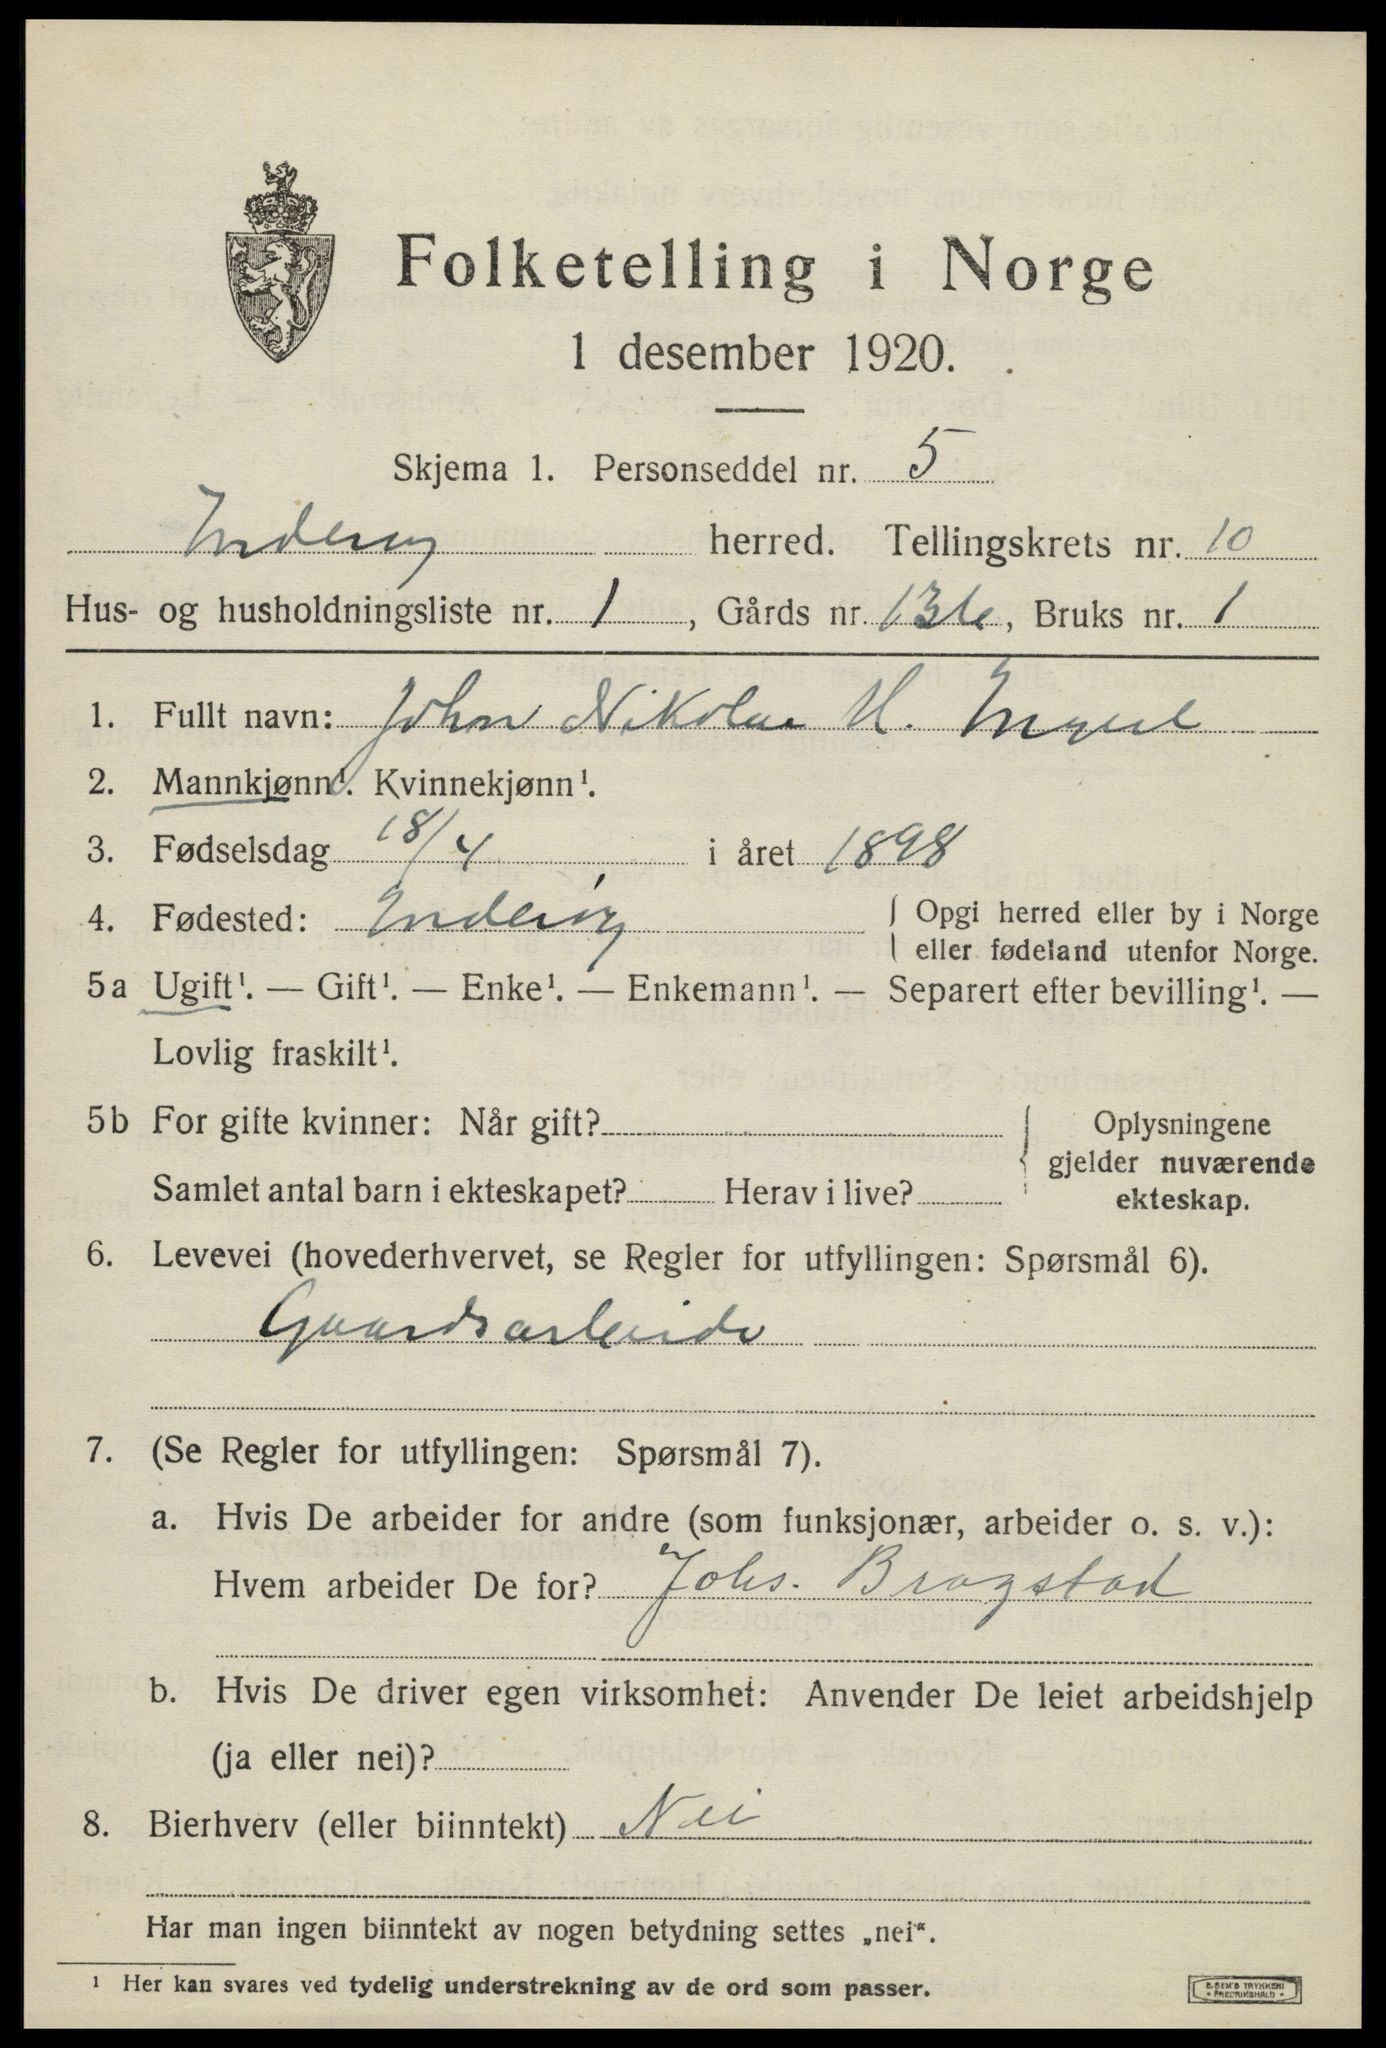 Folketelling i Norge
1 desember 1920.
Skjema 1. Personseddel nr. 5
Inderøy herred. Tellingskrets nr. 10
Hus- og husholdningsliste nr. 1, Gårds nr. 136, Bruks nr. 1
1. Fullt navn: John Nikolai H.
2. Mannkjønn¹. Kvinnekjønn¹.
3. Fødselsdag 18/4 i året 1898
4. Fødested: Inderøy { Opgi herred eller by i Norge
eller fødeland utenfor Norge.
5a Ugift¹. — Gift¹. — Enke¹. — Enkemann¹. — Separert efter bevilling¹. —
Lovlig fraskilt¹.
5b For gifte kvinner: Når gift? { Oplysningene
gjelder nuværende
Samlet antal barn i ekteskapet? Herav i live?
ekteskap.
6. Levevei (hovederhvervet, se Regler for utfyllingen: Spørsmål 6).
Gaardsarbeide
7. (Se Regler for utfyllingen: Spørsmål 7).
a. Hvis De arbeider for andre (som funksjonær, arbeider o. s. v.):
Hvem arbeider De for? Johs. Bragstad
b. Hvis De driver egen virksomhet: Anvender De leiet arbeidshjelp
(ja eller nei)?
8. Bierhverv (eller biinntekt) Nei
Har man ingen biinntekt av nogen betydning settes „nei“.
¹ Her kan svares ved tydelig understrekning av de ord som passer.
E. SEM'S TRYKKERI
• FREDRIKSHALD •